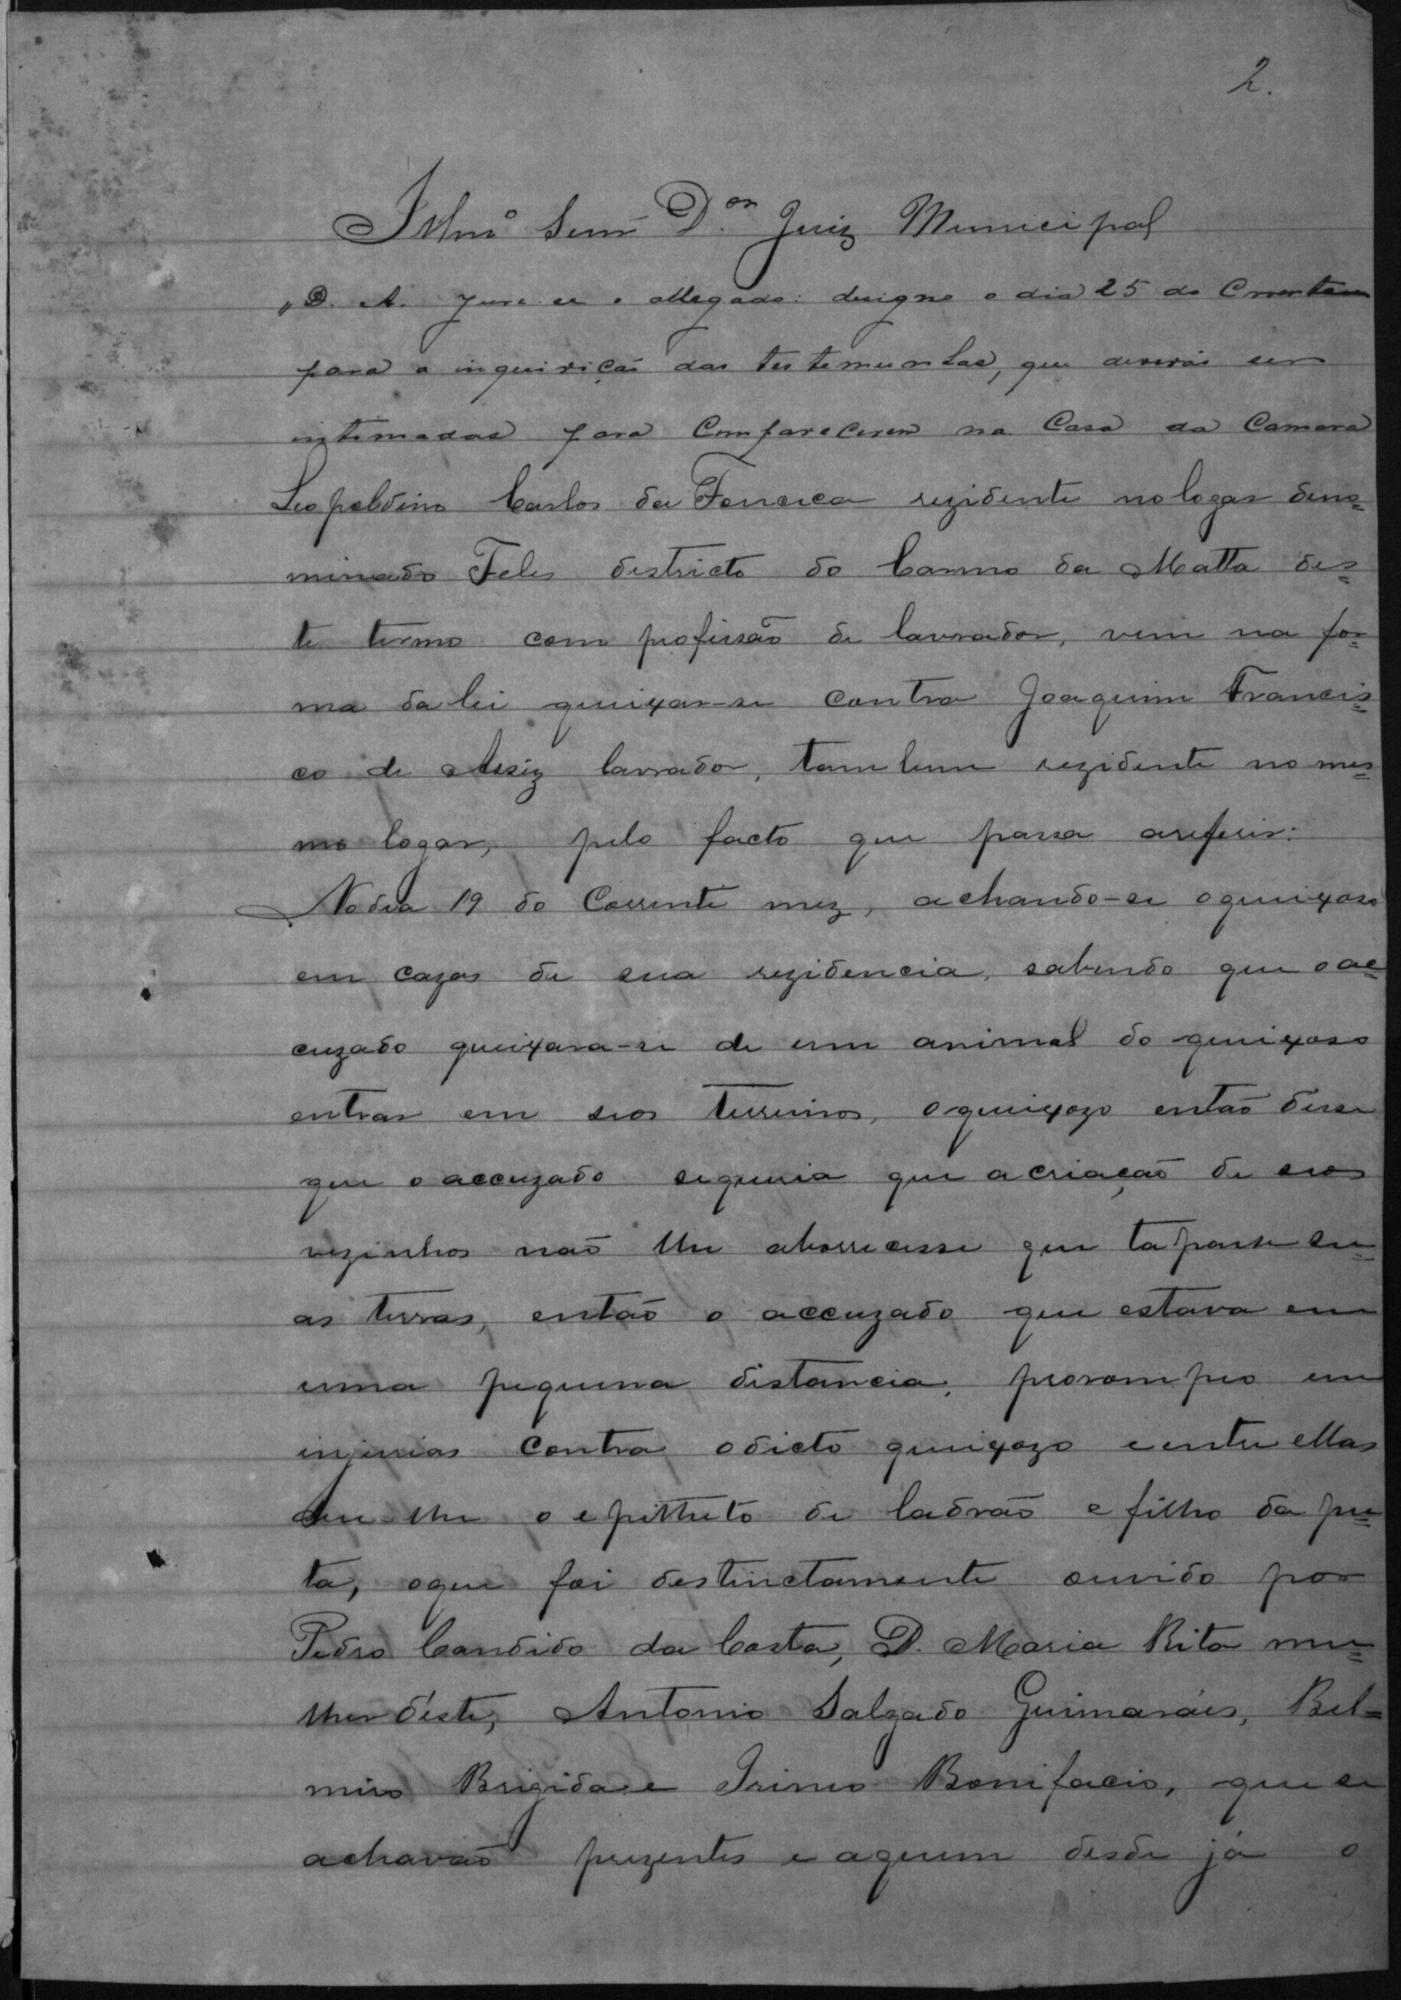 2.
Illmº Senr D.or Juiz Municipal
D. A. Jure-se o allegado: designo o dia 25 do Corrente
para a inquirição das testemunhas, que deverão ser
intimadas para Comparecerem na Casa da Camara
Leopoldino Carlos da Fonceca rezidente no logar deno=
minado Feles destricto do Carmo da Matta des=
te termo com profissão de lavrador, vem na for=
ma da lei queixar-se contra Joaquim Francis=
co de Assiz lavrador, tambem rezidente no mes=
mo logar, pelo facto que passa areferir:
Nodia 19 do Corrente mez, achando-se oqueixoso
em cazas de sua rezidencia, sabendo que oac=
cuzado queixara-se de um animal do queixoso
entrar em seos terrenos, oqueixozo então disse
que o accuzado sequeria que acriação de seos
vezinhos não lhe aborrecesse que tapasse su=
as terras, então o accuzado que estava em
uma pequena distancia, prorompeo em
injurias contra odicto queixozo eentre ellas
deu-lhe o epitheto de ladrão e filho da pu=
ta, oque foi destinctamente ouvido por
Pedro Candido da Costa, D. Maria Rita mu=
lher d'este, Antonio Salgado Guimarães, Bel=
miro Brigida e Irineo Bonifacio, que se
achavão prezentes e aquem desde já o